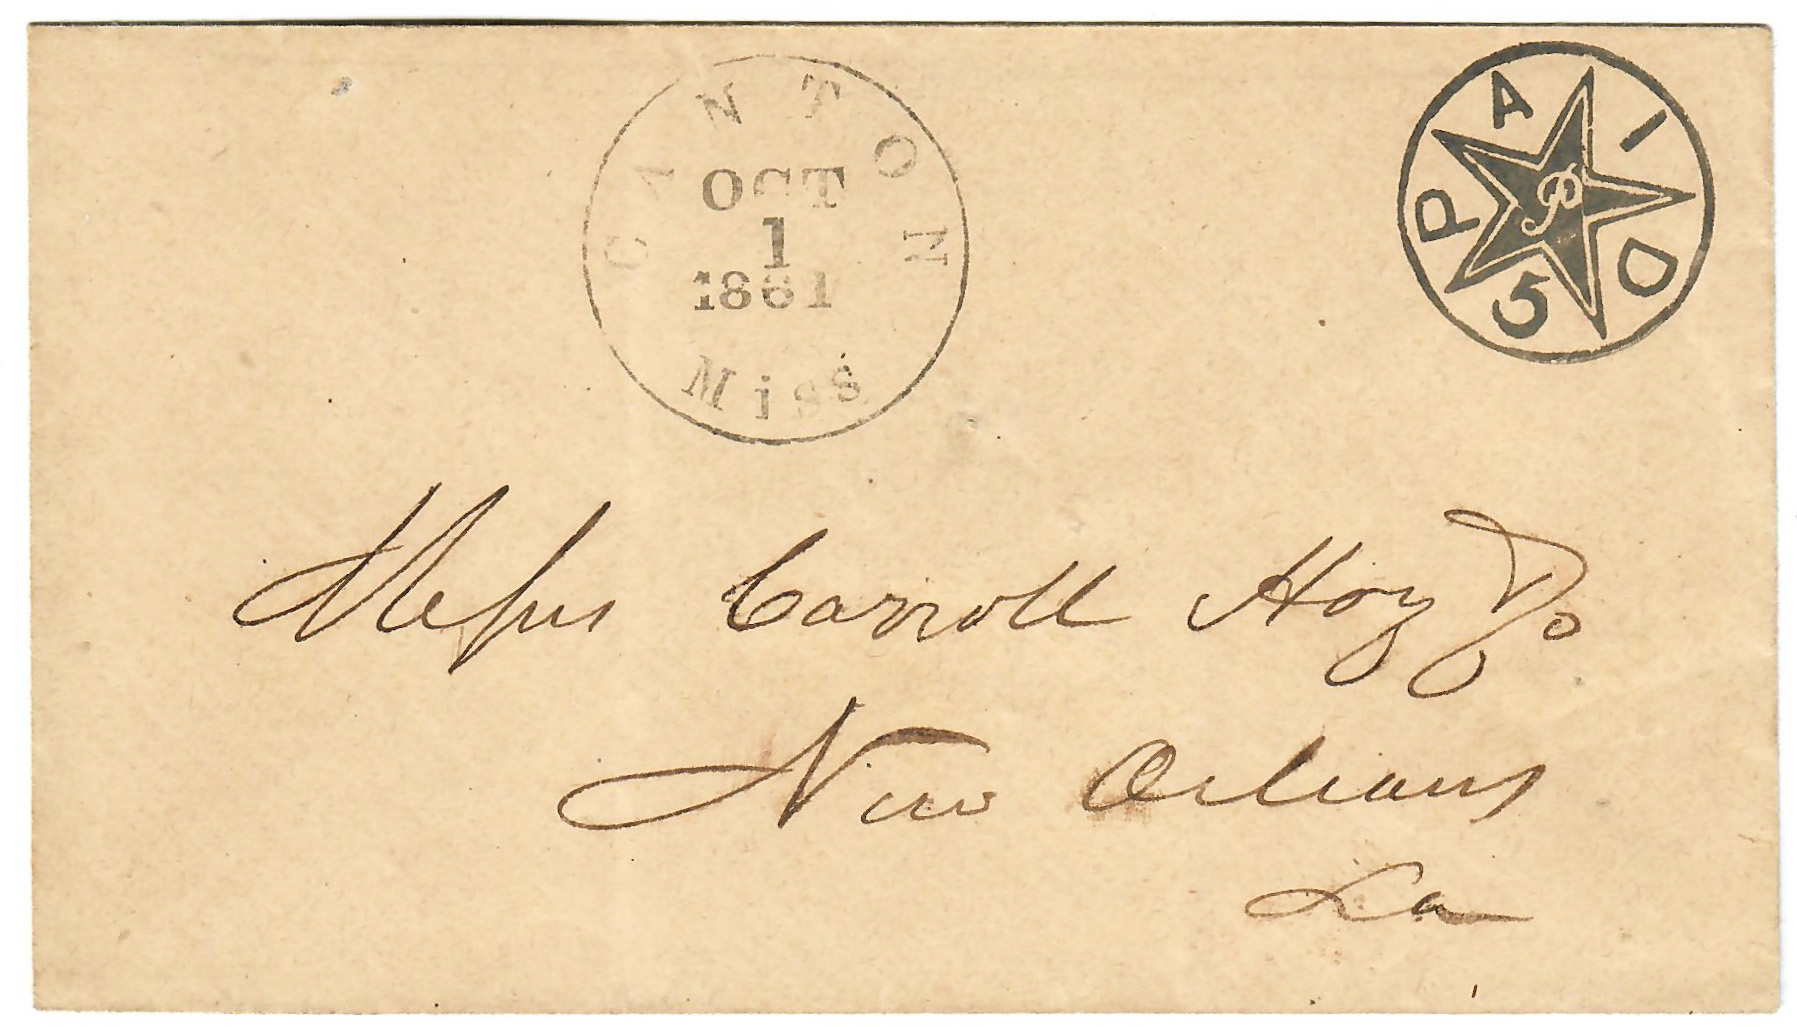 CANTON
OCT
1
1861
Miss
PAID
P
5
Messrs Carroll Hoy & Co
New Orleans
La